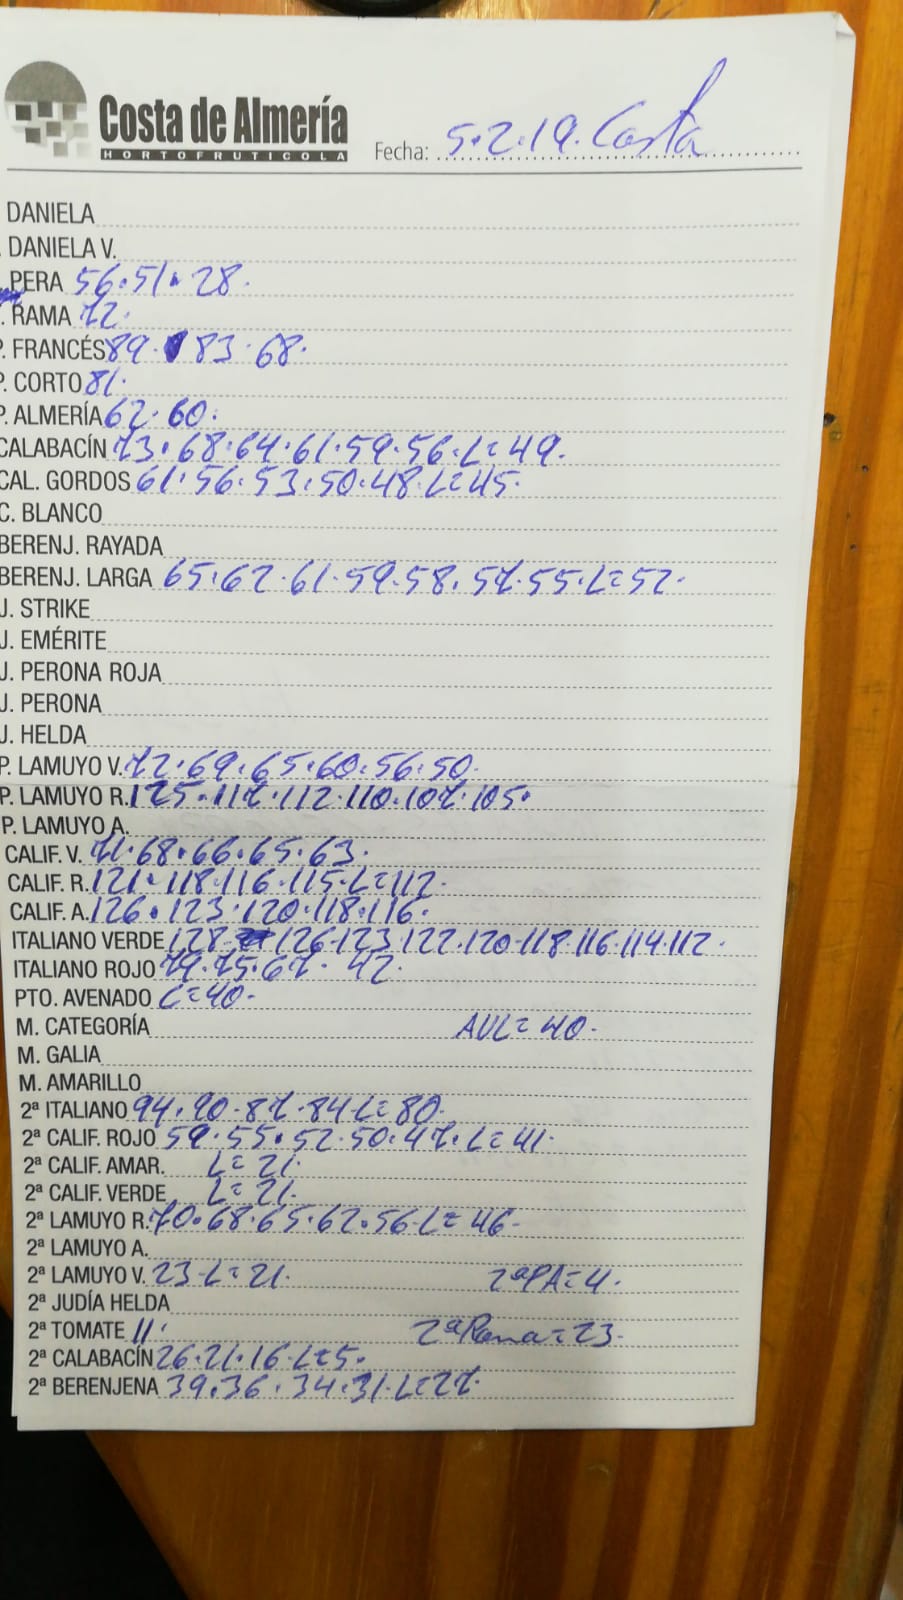 Costa de Almería
HORTOFRUTICOLA
Fecha: 5.2.19. Costa
DANIELA
DANIELA V.
PERA 56.51.28.
RAMA 72.
P. FRANCÉS 89. 83.68.
P. CORTO 81.
P. ALMERÍA 62.60.
CALABACÍN 73.68.64.61.59.56.L=49.
CAL. GORDOS 61.56.53.50.48.L=45.
C. BLANCO
BERENJ. RAYADA
BERENJ. LARGA 65.62.61.59.58.57.55.L=52.
J. STRIKE
J. EMÉRITE
J. PERONA ROJA
J. PERONA
J. HELDA
P. LAMUYO V. 72.69.65.60.56.50.
P. LAMUYO R. 125.117.112.110.107.105.
P. LAMUYO A.
CALIF. V. 71.68.66.65.63.
CALIF. R. 121.118.116.115.L=112.
CALIF. A. 126.123.120.118.116.
ITALIANO VERDE 128. 126.123.122.120.118.116.114.112.
ITALIANO ROJO 79.75.67. 42.
PTO. AVENADO L=40.
M. CATEGORÍA AVL=40.
M. GALIA
M. AMARILLO
2ª ITALIANO 94.90.87.84.L=80.
2ª CALIF. ROJO 59.55.52.50.47.L=41.
2ª CALIF. AMAR. L=21.
2ª CALIF. VERDE L=21.
2ª LAMUYO R. 70.68.65.62.56.L=46.
2ª LAMUYO A.
2ª LAMUYO V. 23.L=21. 2ªPA=4.
2ª JUDÍA HELDA
2ª TOMATE 11. 2ªRama=23.
2ª CALABACÍN 26.21.16.L=5.
2ª BERENJENA 39.36.34.31.L=27.